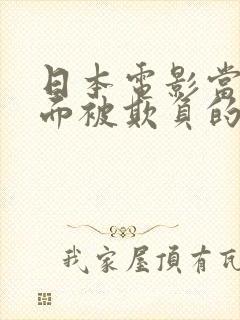 日本電影當
而被欺負的
我家屋頂有瓦